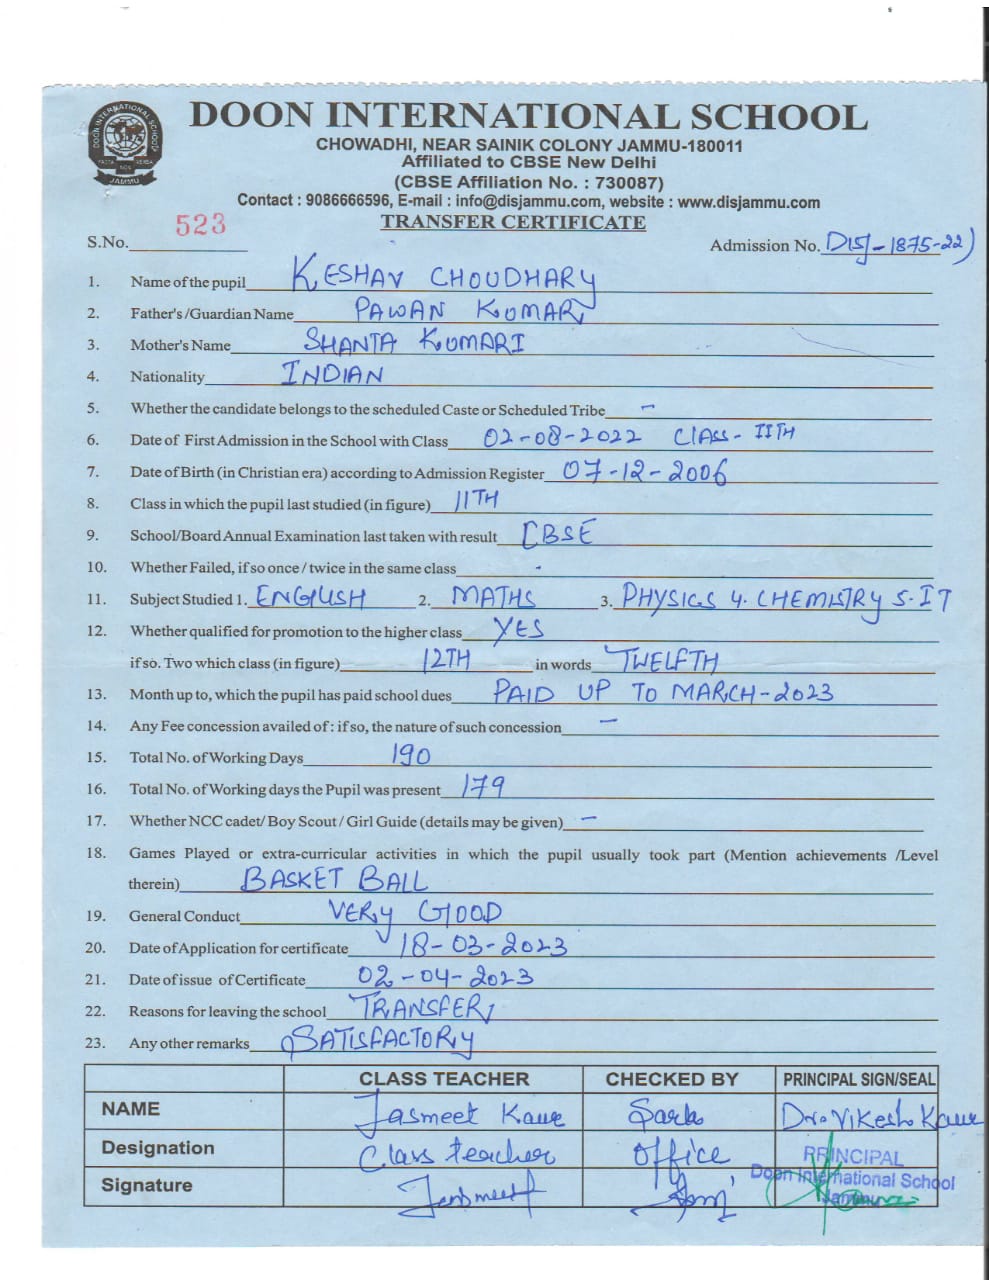 DOON INTERNATIONAL SCHOOL
CHOWADHI, NEAR SAINIK COLONY JAMMU-180011
Affiliated to CBSE New Delhi
(CBSE Affiliation No. : 730087)
Contact : 9086666596, E-mail : info@disjammu.com, website : www.disjammu.com
TRANSFER CERTIFICATE
DOON INTERNATIONAL SCHOOL
JAMMU
S.No. 523 Admission No. DISJ-1875-22)
1. Name of the pupil KESHAV CHOUDHARY
2. Father's /Guardian Name PAWAN KUMAR
3. Mother's Name SHANTA KUMARI
4. Nationality INDIAN
5. Whether the candidate belongs to the scheduled Caste or Scheduled Tribe -
6. Date of First Admission in the School with Class 02-08-2022 Class- 11TH
7. Date of Birth (in Christian era) according to Admission Register 07-12-2006
8. Class in which the pupil last studied (in figure) 11TH
9. School/Board Annual Examination last taken with result CBSE
10. Whether Failed, if so once / twice in the same class -
11. Subject Studied 1. ENGLISH 2. MATHS 3. PHYSICS 4. CHEMISTRY 5. IT
12. Whether qualified for promotion to the higher class YES
if so. Two which class (in figure) 12TH in words TWELFTH
13. Month up to, which the pupil has paid school dues PAID UP TO MARCH-2023
14. Any Fee concession availed of : if so, the nature of such concession -
15. Total No. of Working Days 190
16. Total No. of Working days the Pupil was present 179
17. Whether NCC cadet/ Boy Scout / Girl Guide (details may be given) -
18. Games Played or extra-curricular activities in which the pupil usually took part (Mention achievements /Level
therein) BASKET BALL
19. General Conduct VERY GOOD
20. Date of Application for certificate 18-03-2023
21. Date of issue of Certificate 02-04-2023
22. Reasons for leaving the school TRANSFER
23. Any other remarks SATISFACTORY
CLASS TEACHER CHECKED BY PRINCIPAL SIGN/SEAL
NAME Jasmeet Kaur Dr. Vikesh Kaur
Designation Class teacher Office PRINCIPAL
Doon International School
Signature Jasmeet Jammu